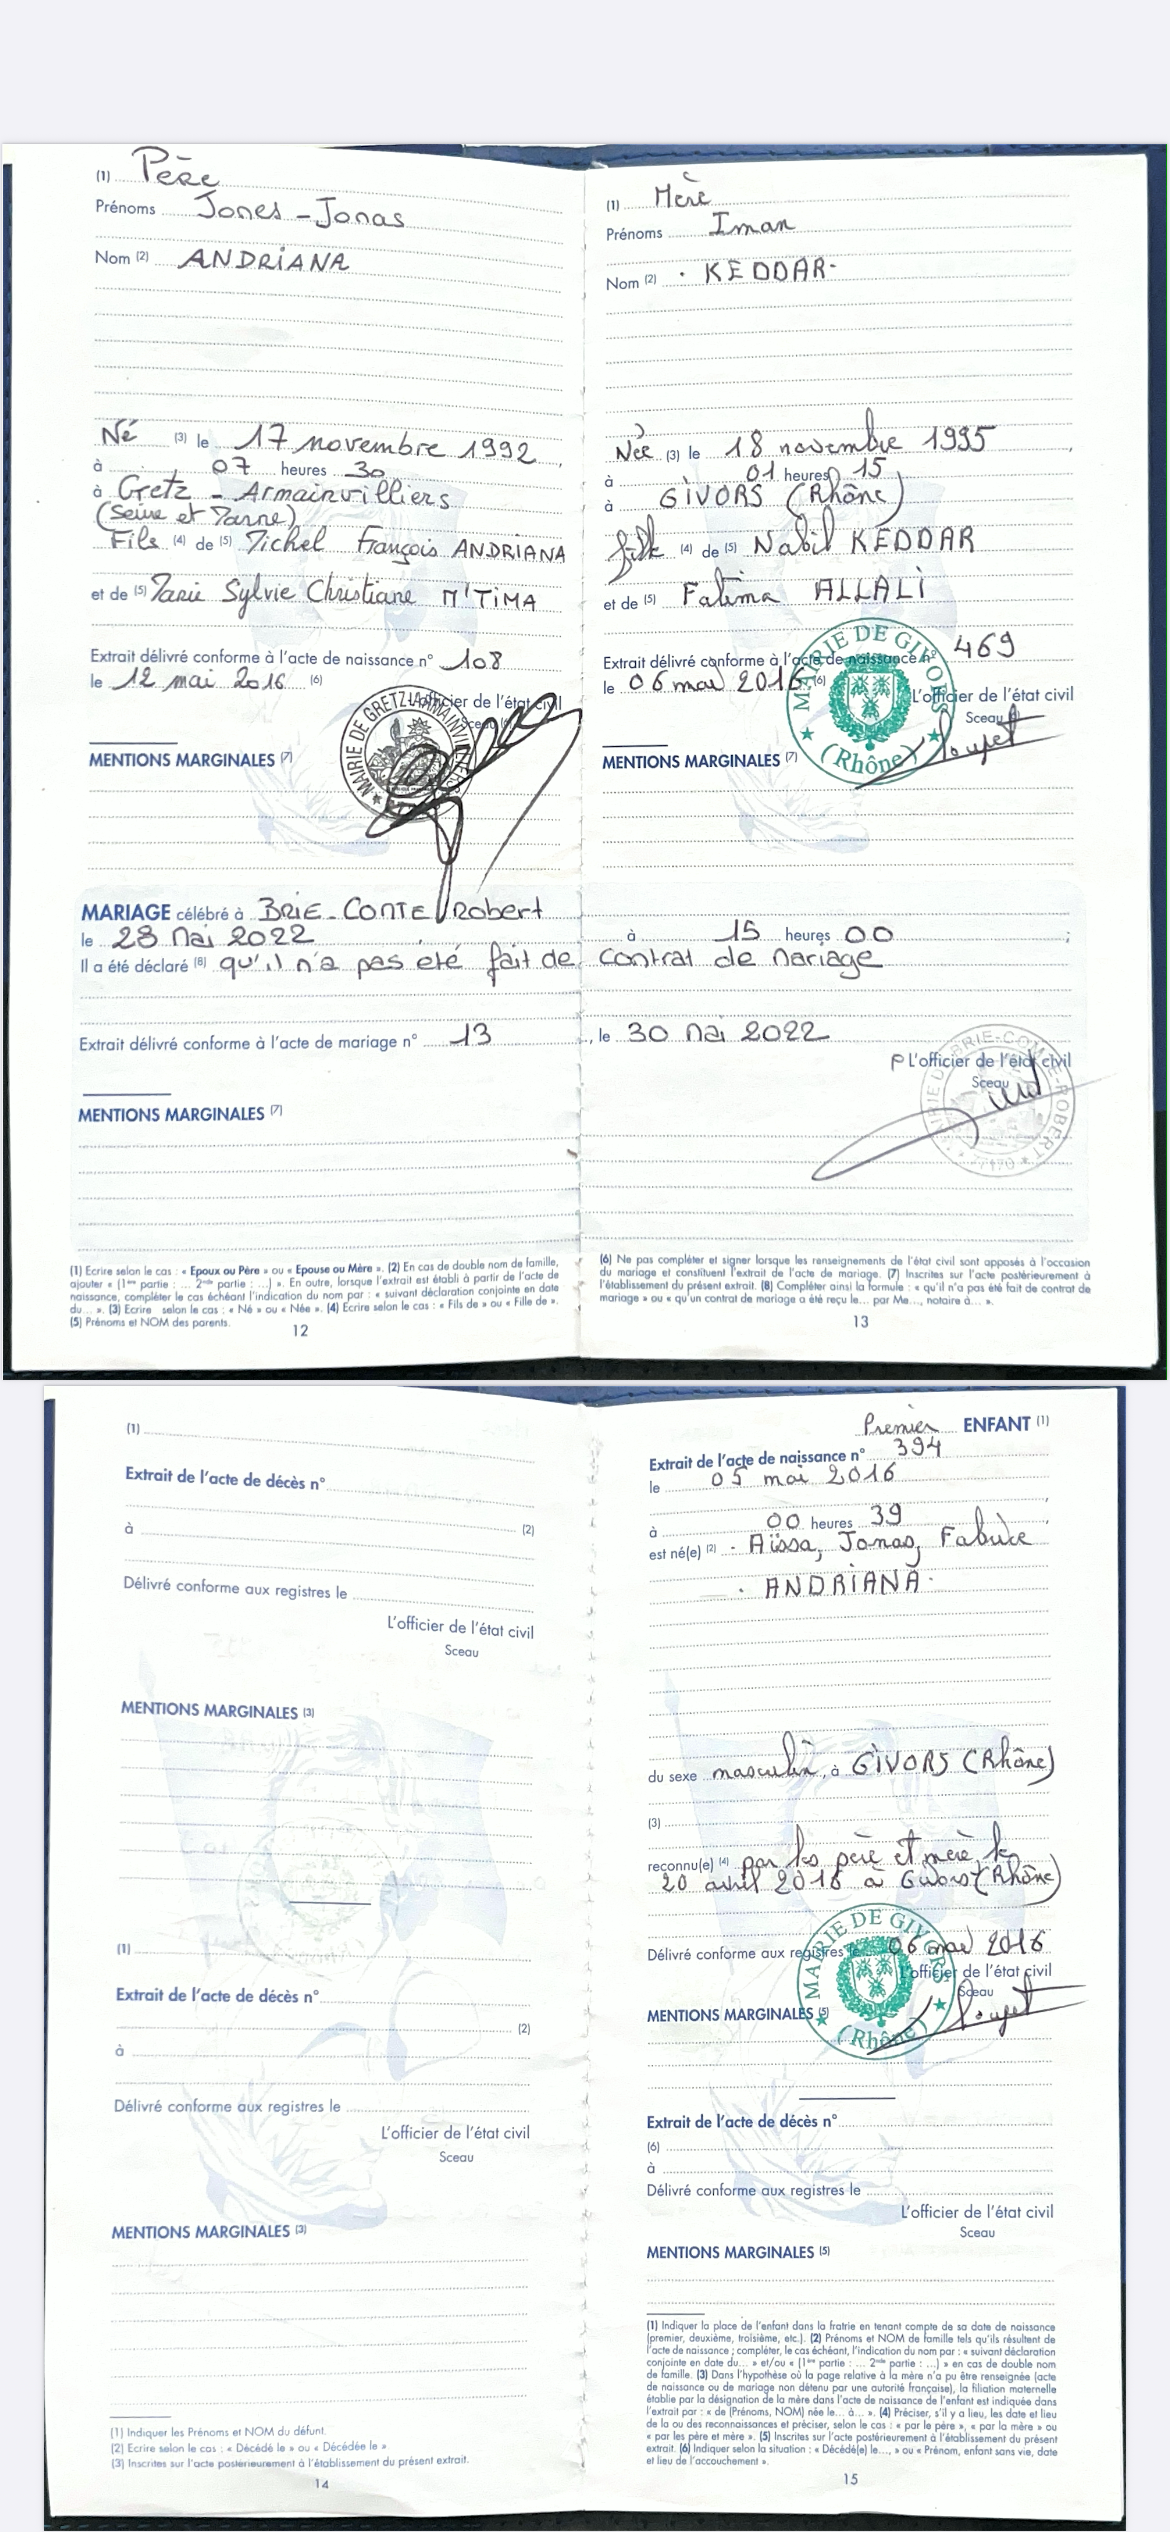 (1) Père
Prénoms Jones-Jonas
Nom (2) ANDRIANA
Né (3) le 17 novembre 1992,
à 07 heures 30
à Gretz-Armainvilliers
(Seine et Marne)
Fils (4) de (5) Michel François ANDRIANA
et de (5) Marie Sylvie Christiane M'TIMA
Extrait délivré conforme à l'acte de naissance n° 108
le 12 mai 2016 (6)
L'officier de l'état civil
Sceau
MAIRIE DE GRETZ-ARMAINVILLIERS
MENTIONS MARGINALES (7)
(1) Mère
Prénoms Iman
Nom (2) · KEDDAR·
Née (3) le 18 novembre 1995
à 01 heures 15
à GIVORS (Rhône)
fille (4) de (5) Nabil KEDDAR
et de (5) Fatima ALLALI
Extrait délivré conforme à l'acte de naissance n° 469
le 06 mai 2016 (6)
L'officier de l'état civil
Sceau
MAIRIE DE GIVORS
(Rhône)
MENTIONS MARGINALES (7)
MARIAGE célébré à BRIE-COMTE Robert
le 28 Mai 2022 à 15 heures 00 ;
Il a été déclaré (8) qu'il n'a pas été fait de contrat de Mariage
Extrait délivré conforme à l'acte de mariage n° 13, le 30 Mai 2022
P L'officier de l'état civil
Sceau
MAIRIE DE BRIE-COMTE-ROBERT
77170
MENTIONS MARGINALES (7)
(1) Ecrire selon le cas : « Epoux ou Père » ou « Epouse ou Mère ». (2) En cas de double nom de famille,
ajouter « (1ère partie : ... 2nde partie : ...) ». En outre, lorsque l'extrait est établi à partir de l'acte de
naissance, compléter le cas échéant l'indication du nom par : « suivant déclaration conjointe en date
du... ». (3) Ecrire selon le cas : « Né » ou « Née ». (4) Ecrire selon le cas : « Fils de » ou « Fille de ».
(5) Prénoms et NOM des parents.
12
(6) Ne pas compléter et signer lorsque les renseignements de l'état civil sont apposés à l'occasion
du mariage et constituent l'extrait de l'acte de mariage. (7) Inscrites sur l'acte postérieurement à
l'établissement du présent extrait. (8) Compléter ainsi la formule : « qu'il n'a pas été fait de contrat de
mariage » ou « qu'un contrat de mariage a été reçu le... par Me..., notaire à... ».
13
(1)
Extrait de l'acte de décès n°
(2)
à
Délivré conforme aux registres le
L'officier de l'état civil
Sceau
MENTIONS MARGINALES (3)
(1)
Extrait de l'acte de décès n°
(2)
à
Délivré conforme aux registres le
L'officier de l'état civil
Sceau
MENTIONS MARGINALES (3)
(1) Indiquer les Prénoms et NOM du défunt.
(2) Ecrire selon le cas : « Décédé le » ou « Décédée le »
(3) Inscrites sur l'acte postérieurement à l'établissement du présent extrait.
14
Premier ENFANT (1)
Extrait de l'acte de naissance n° 394
le 05 mai 2016,
à 00 heures 39
est né(e) (2) · Aïssa, Jonas, Fabrice
· ANDRIANA·
du sexe masculin, à GIVORS (Rhône)
(3)
reconnu(e) (4) par les père et mère le
20 avril 2016 à Givors (Rhône)
Délivré conforme aux registres le 06 mai 2016
L'officier de l'état civil
Sceau
MAIRIE DE GIVORS
(Rhône)
MENTIONS MARGINALES (5)
Extrait de l'acte de décès n°
(6)
à
Délivré conforme aux registres le
L'officier de l'état civil
Sceau
MENTIONS MARGINALES (5)
(1) Indiquer la place de l'enfant dans la fratrie en tenant compte de sa date de naissance
(premier, deuxième, troisième, etc.). (2) Prénoms et NOM de famille tels qu'ils résultent de
l'acte de naissance ; compléter, le cas échéant, l'indication du nom par : « suivant déclaration
conjointe en date du... » et/ou « (1ère partie : ... 2nde partie : ...) » en cas de double nom
de famille. (3) Dans l'hypothèse où la page relative à la mère n'a pu être renseignée (acte
de naissance ou de mariage non détenu par une autorité française), la filiation maternelle
établie par la désignation de la mère dans l'acte de naissance de l'enfant est indiquée dans
l'extrait par : « de (Prénoms, NOM) née le... à... ». (4) Préciser, s'il y a lieu, les date et lieu
de la ou des reconnaissances et préciser, selon le cas : « par le père », « par la mère » ou
« par les père et mère ». (5) Inscrites sur l'acte postérieurement à l'établissement du présent
extrait. (6) Indiquer selon la situation : « Décédé(e) le..., » ou « Prénom, enfant sans vie, date
et lieu de l'accouchement ».
15